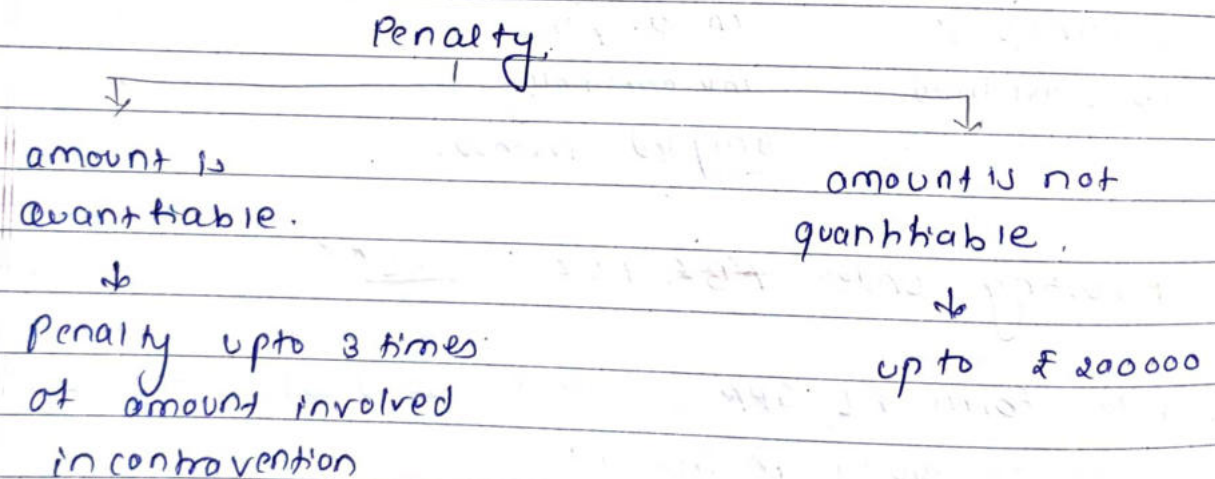 Penalty.
amount is
Quantifiable.
Penalty upto 3 times
of amount involved
in controvention
amount is not
quantifiable.
up to ₹ 200000